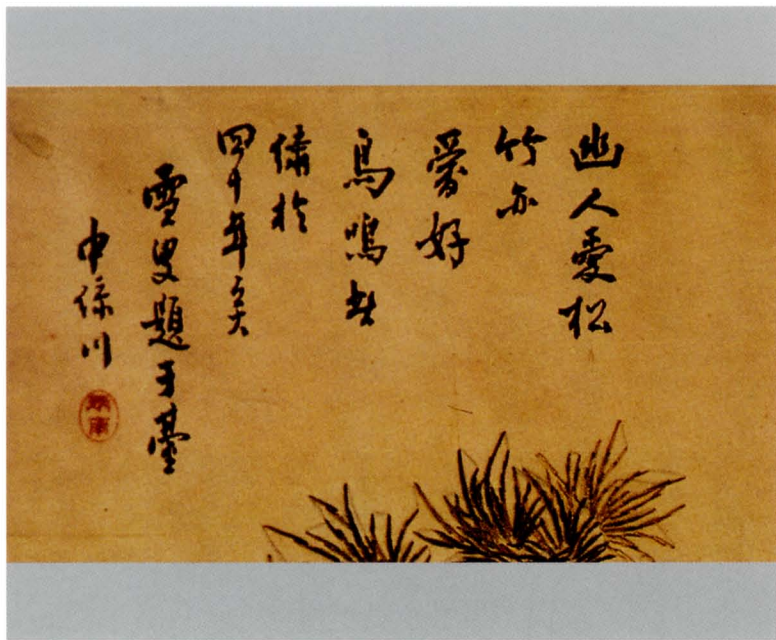 幽人愛松
竹亦
愛好
鳥鳴
於
四十年
雪叟題于臺
中 川